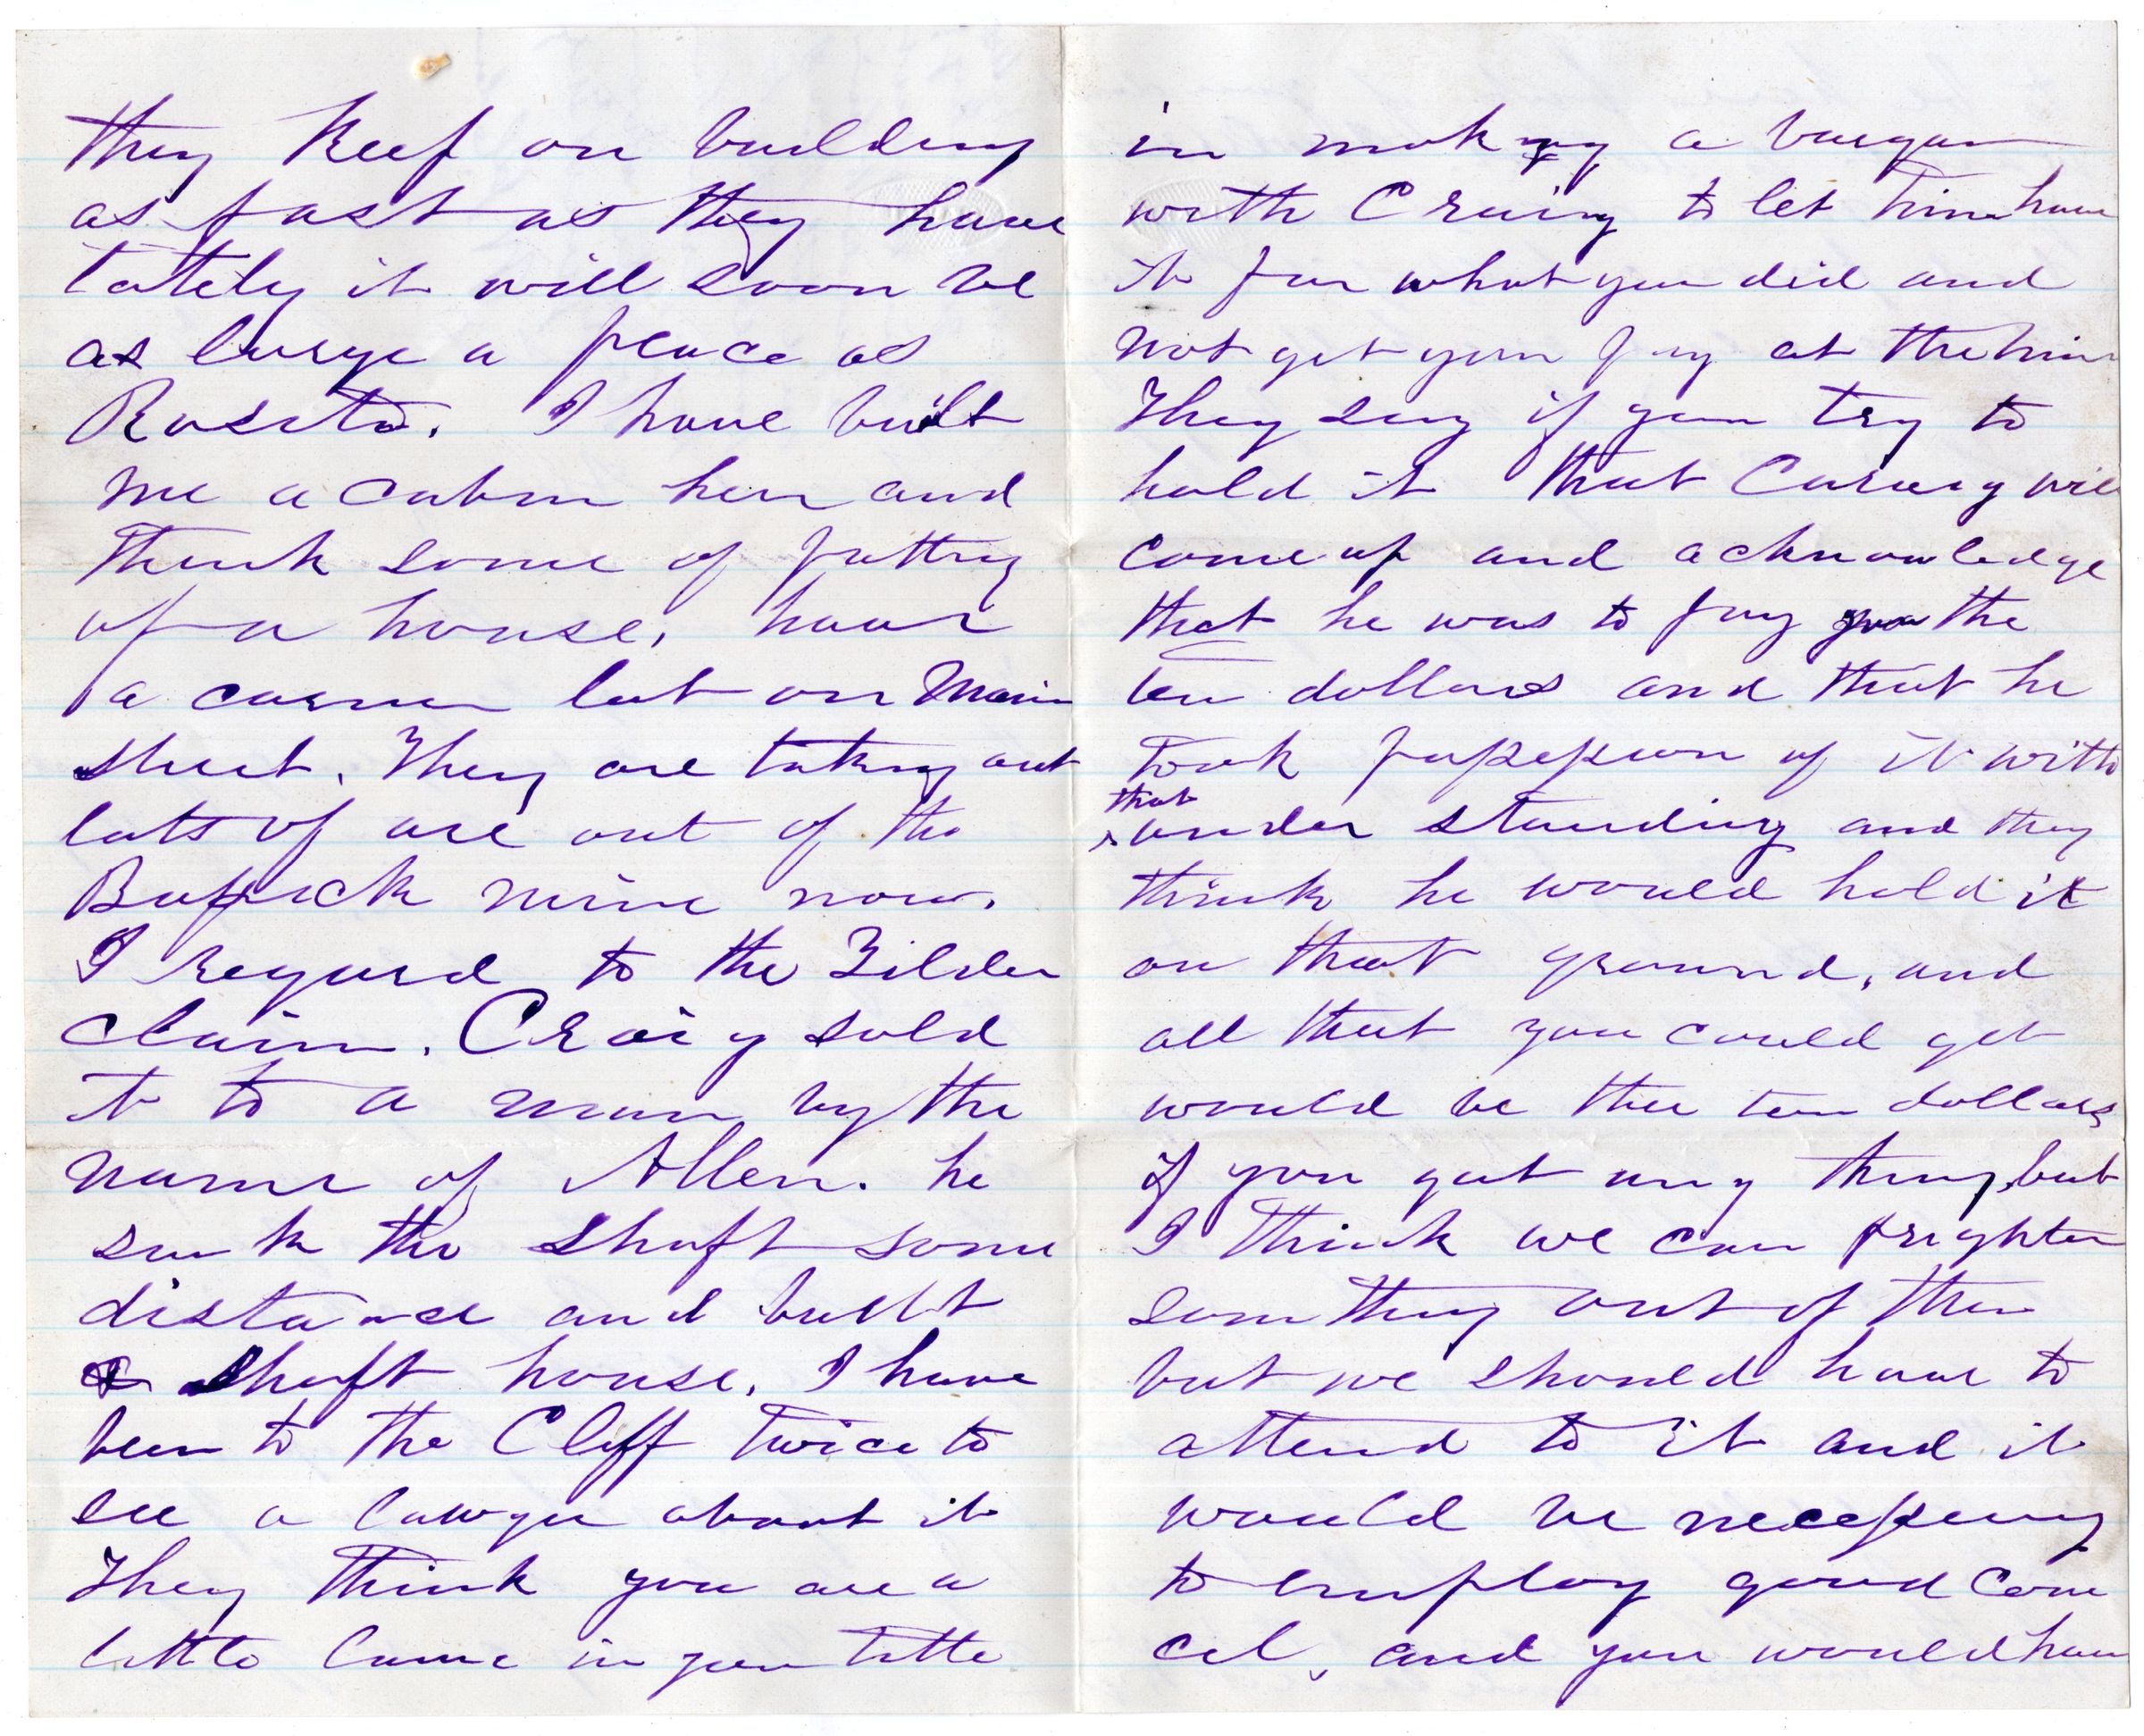 they Keep on building
as fast as they have
lately it will soon be
as large a place as
Rosita. I have built
me a cabin here and
think some of putting
up a house, have
a corner lot on Main
street. They are taking out
lots of ore out of the
Bassick mine now.
I regard to the Tilden
claim. Craig sold
it to a man by the
name of Allen. he
sunk the shaft some
distance and built
a shaft house. I have
been to the Cliff twice to
see a lawyer about it
They think you are a
little lame in your title
in making a bargan
with Craig to let him have
it for what you did and
not get your pay at the time
They say if you try to
hold it that Craig will
come up and acknowledge
that he was to pay you the
ten dollars and that he
took possession of it with
that
understanding and they
think he would hold it
on that ground, and
all that you could get
would be the ten dollars
if you got any thing, but
I think we can frighten
something out of them
but we should have to
attend to it and it
would be necessary
to employ good Coun
cel, and you would have